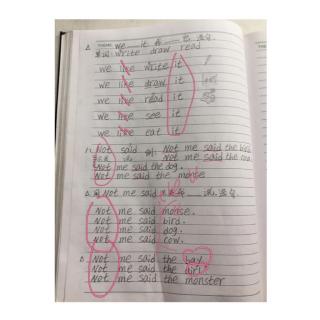 2. we __ it 和 __ 也 造句.
单词 write draw read
we like write it
we like draw it
we like read it
we like see it
we like eat it
Not said 例: Not me said the bird.
Not me said the cow.
Not me said the dog.
Not me said the monse
用 Not me said 造句
Not me said monse.
Not me said bird.
Not me said dog.
Not me said cow.
Not me said the bay.
Not me said the girl.
Not me said the monster